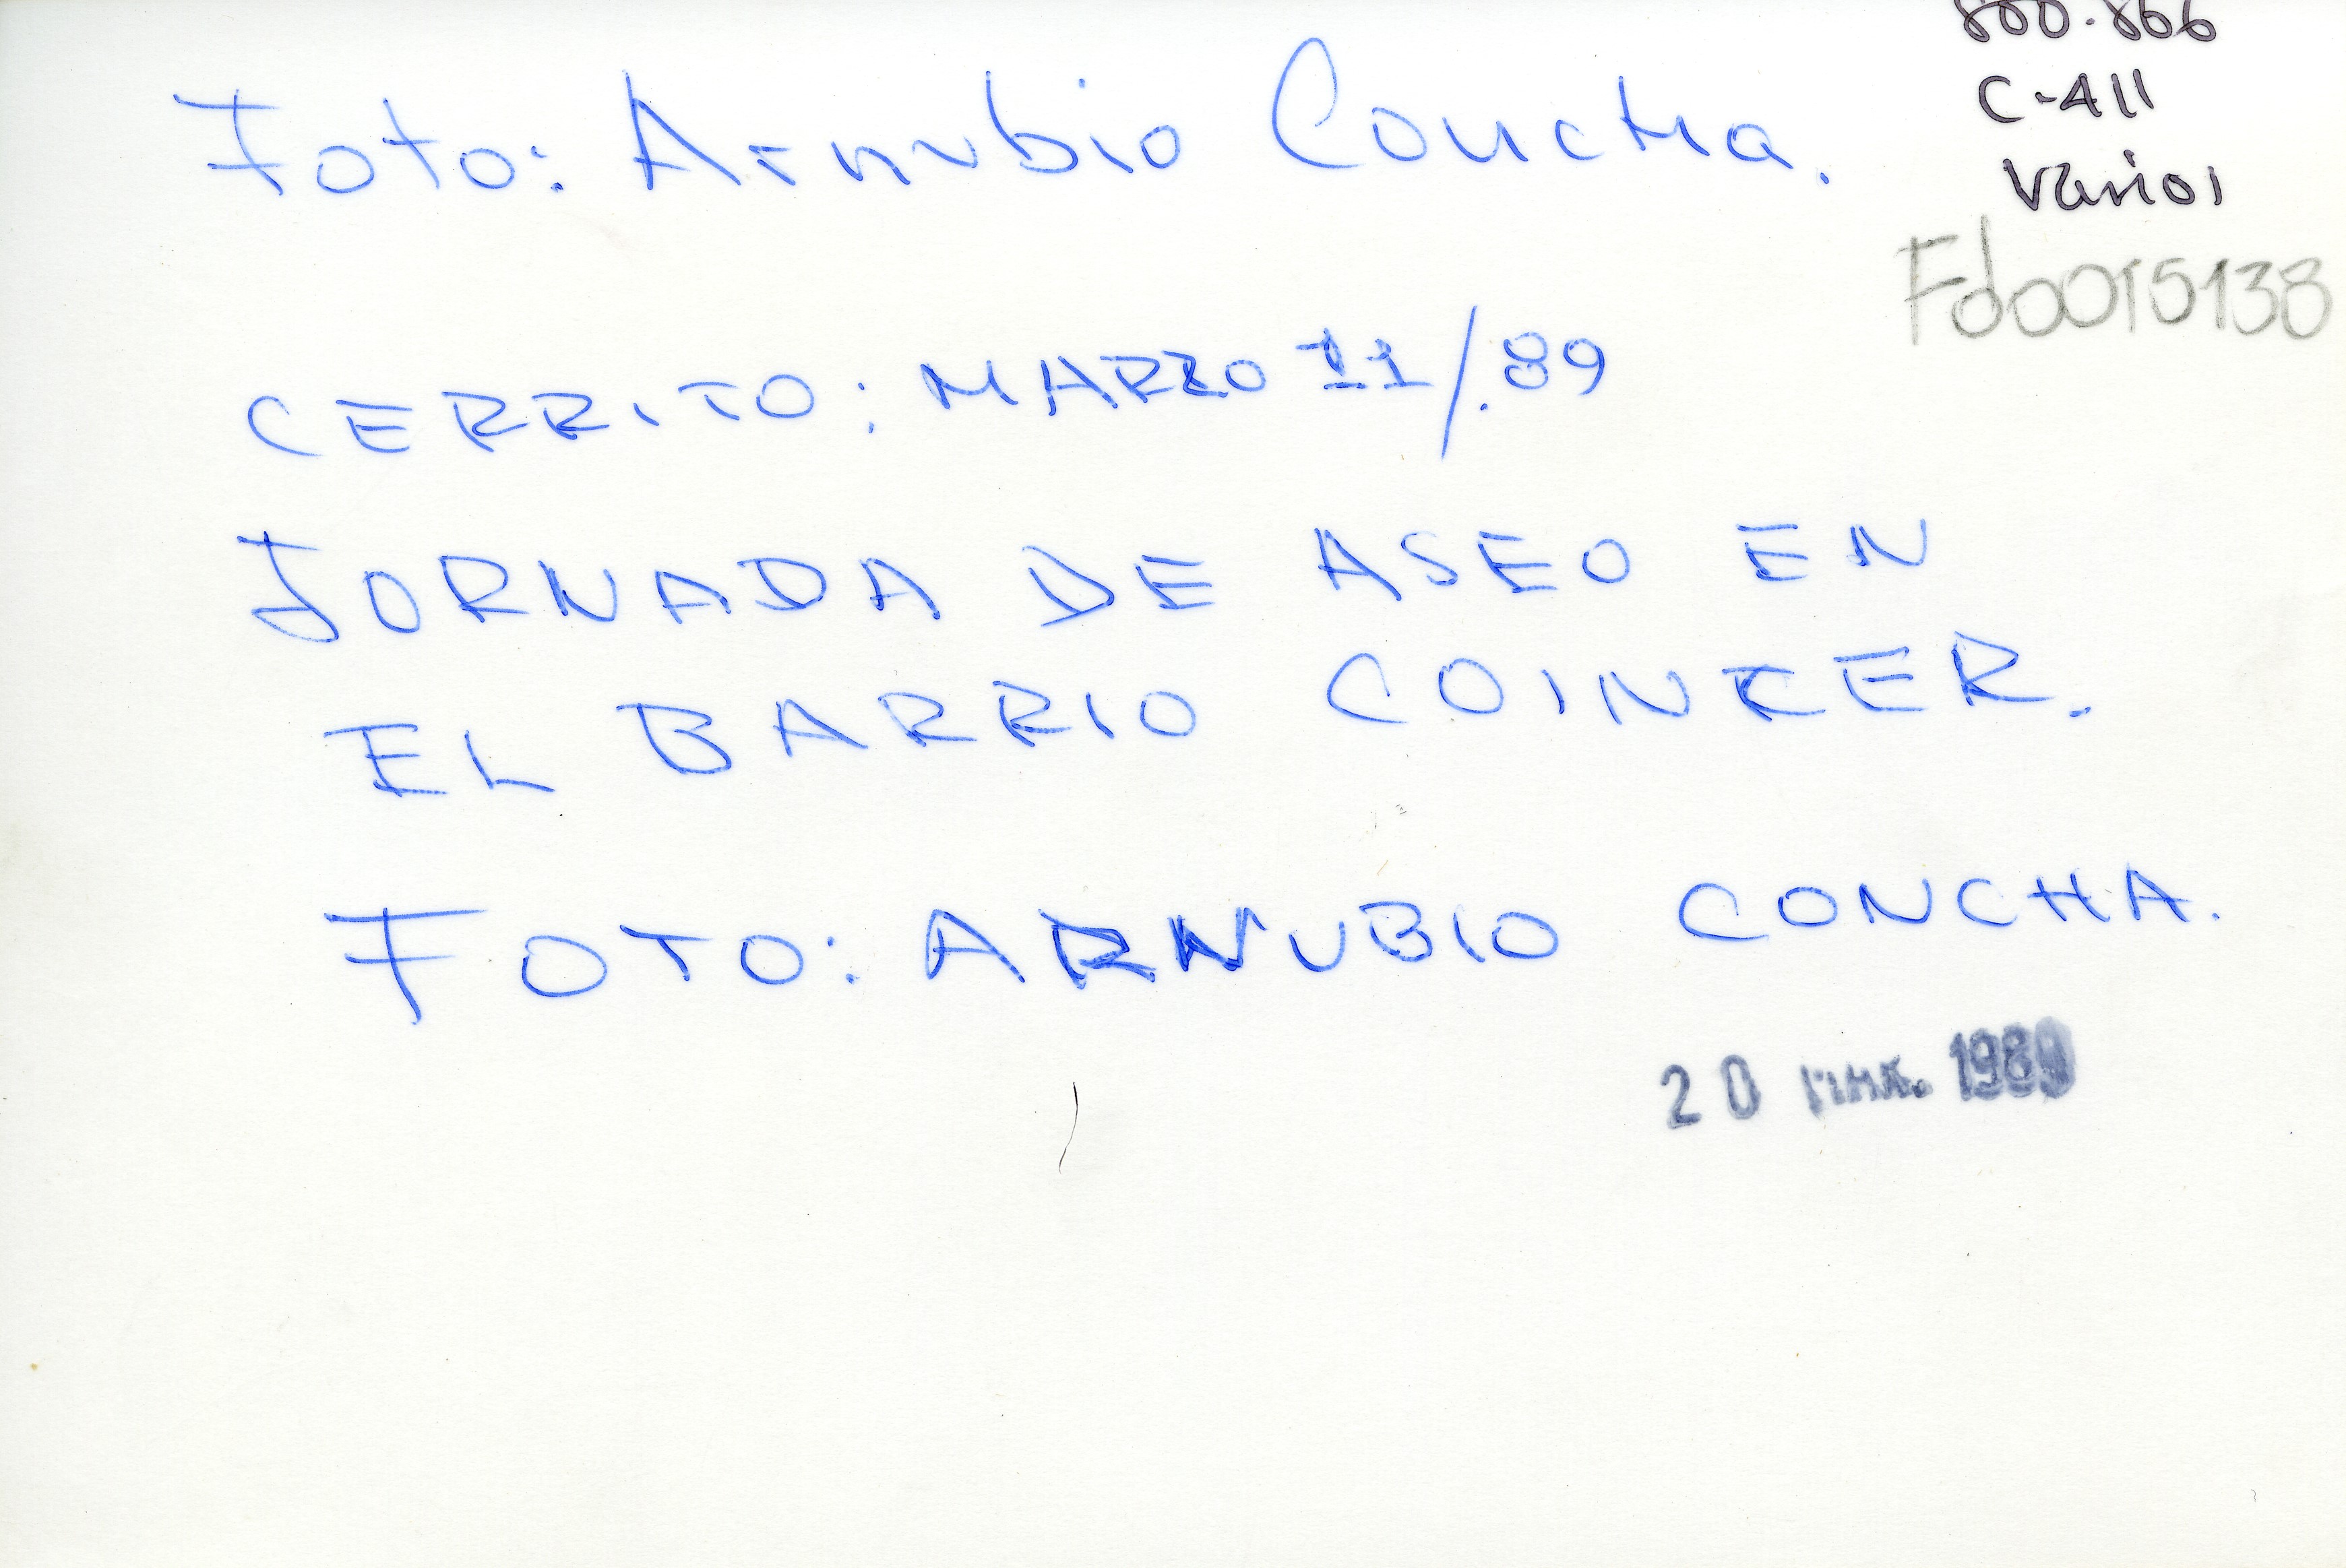 800.866
C-411
Varios
Foto: Arnubio Concha.
Fdo0015138
CERRITO: MARZO 11/.89
JORNADA DE ASEO EN
EL BARRIO COINCER.
FOTO: ARNUBIO CONCHA.
20 MAR. 1989